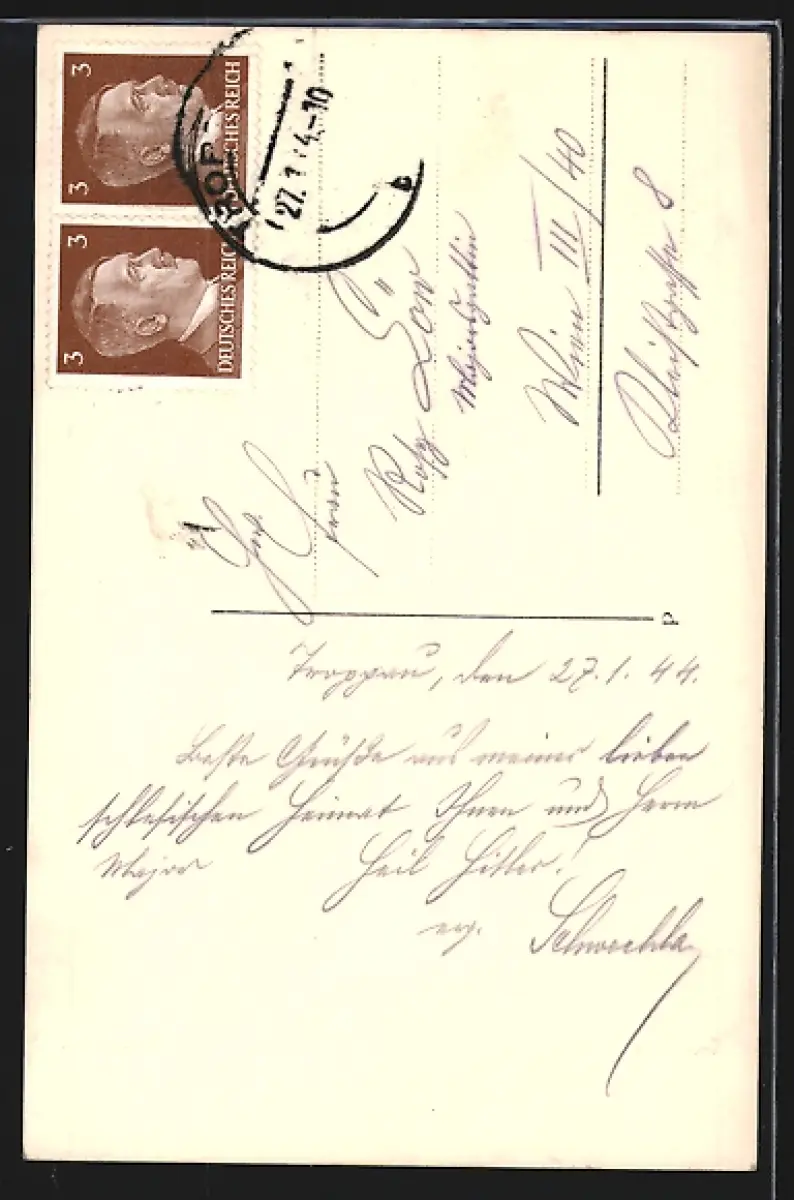 3 3
DEUTSCHES REICH
3 3
DEUTSCHES REICH
TROP
27.1.44-10
b
Frau
Löw
Majorsgattin
Wien III/40
8
P
Troppau, den 27.1.44.
Beste Grüße aus meiner lieben
schlesischen Heimat Ihnen und Herrn
Major Heil Hitler!
erg. Schwechla